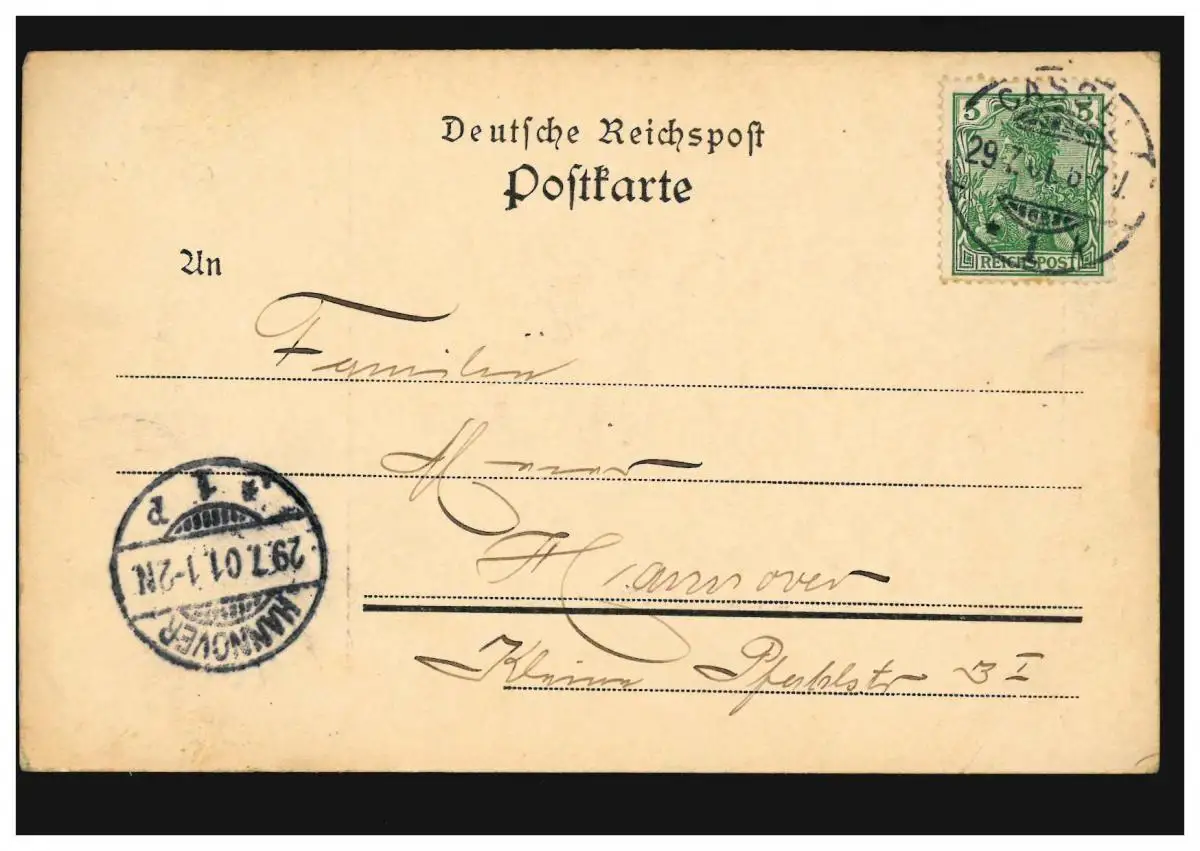 Deutsche Reichspost
Postkarte
5 5
CASSEL
29.7.01. 6-7 V.
* 1
REICHSPOST
An
Familie
Meier
Hannover
Kleine Pfahlstr 3 I
* 1 P
29.7.01. 1-2N
HANNOVER